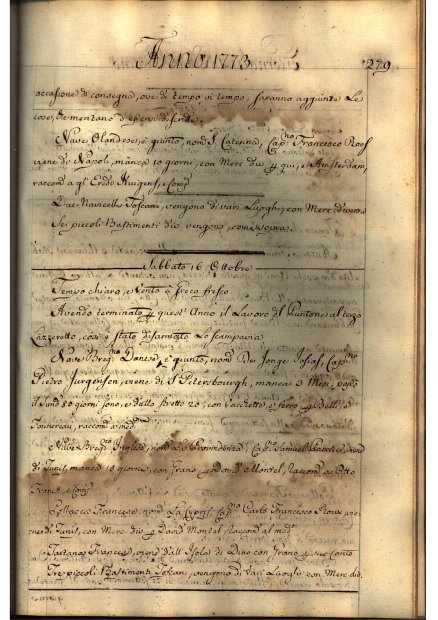 Anno 1773.
229
occasione di consegna, ove di tempo in tempo, saranno aggiunte le
cose, che meritano d'essere descritte.
Nave Olandese, è giunto, nom.ª S. Caterina, Cap.no Francesco Roos
viene di Napoli, manca 10 giorni, con Merc. div.e p qui, e Amsterdam,
raccom.a a gl' Eredi Huigens, e Comp.
Due Navicelli Toscani, vengono di vari Luoghi, con Merc. diverse
Sei piccoli Bastimenti div. vengono, come sopra.
Sabbato 16 Ottobre.
Tempo chiaro, e Vento fresco
Avendo terminato p quest' Anno il Lavoro di Puntone al terzo
Lazzeretto, così è stato disarmato lo scampavia
Nave Danese, è giunto, nom.ª De Jonge Josias, Cap.no
Pietro Jurgenson, viene di S. Petersbourgh, manca 3 Mesi, passò
il Sund 50 giorni sono, e dallo Stretto 20, con Vacchette, e ferro p
raccom.a al med.mo
Nave Inglese, nom.ª La Provvidenza, Cap. Samuel viene
di Tunis, manca 10 giorni, con Grano, p David Montel, Raccom.a a Otto
Franck e Comp.
Pollacca Francese, nom.ª La Cap. Carlo Francesco vie-
ne di Tunis, con Merc. div. p David Montel Raccom.a al med.
Tartana Francese, viene dall' Isola di Dino con Grano p suo Conto
Tre piccoli Bastimenti Toscani, vengono di vari Luoghi con Merc. div.